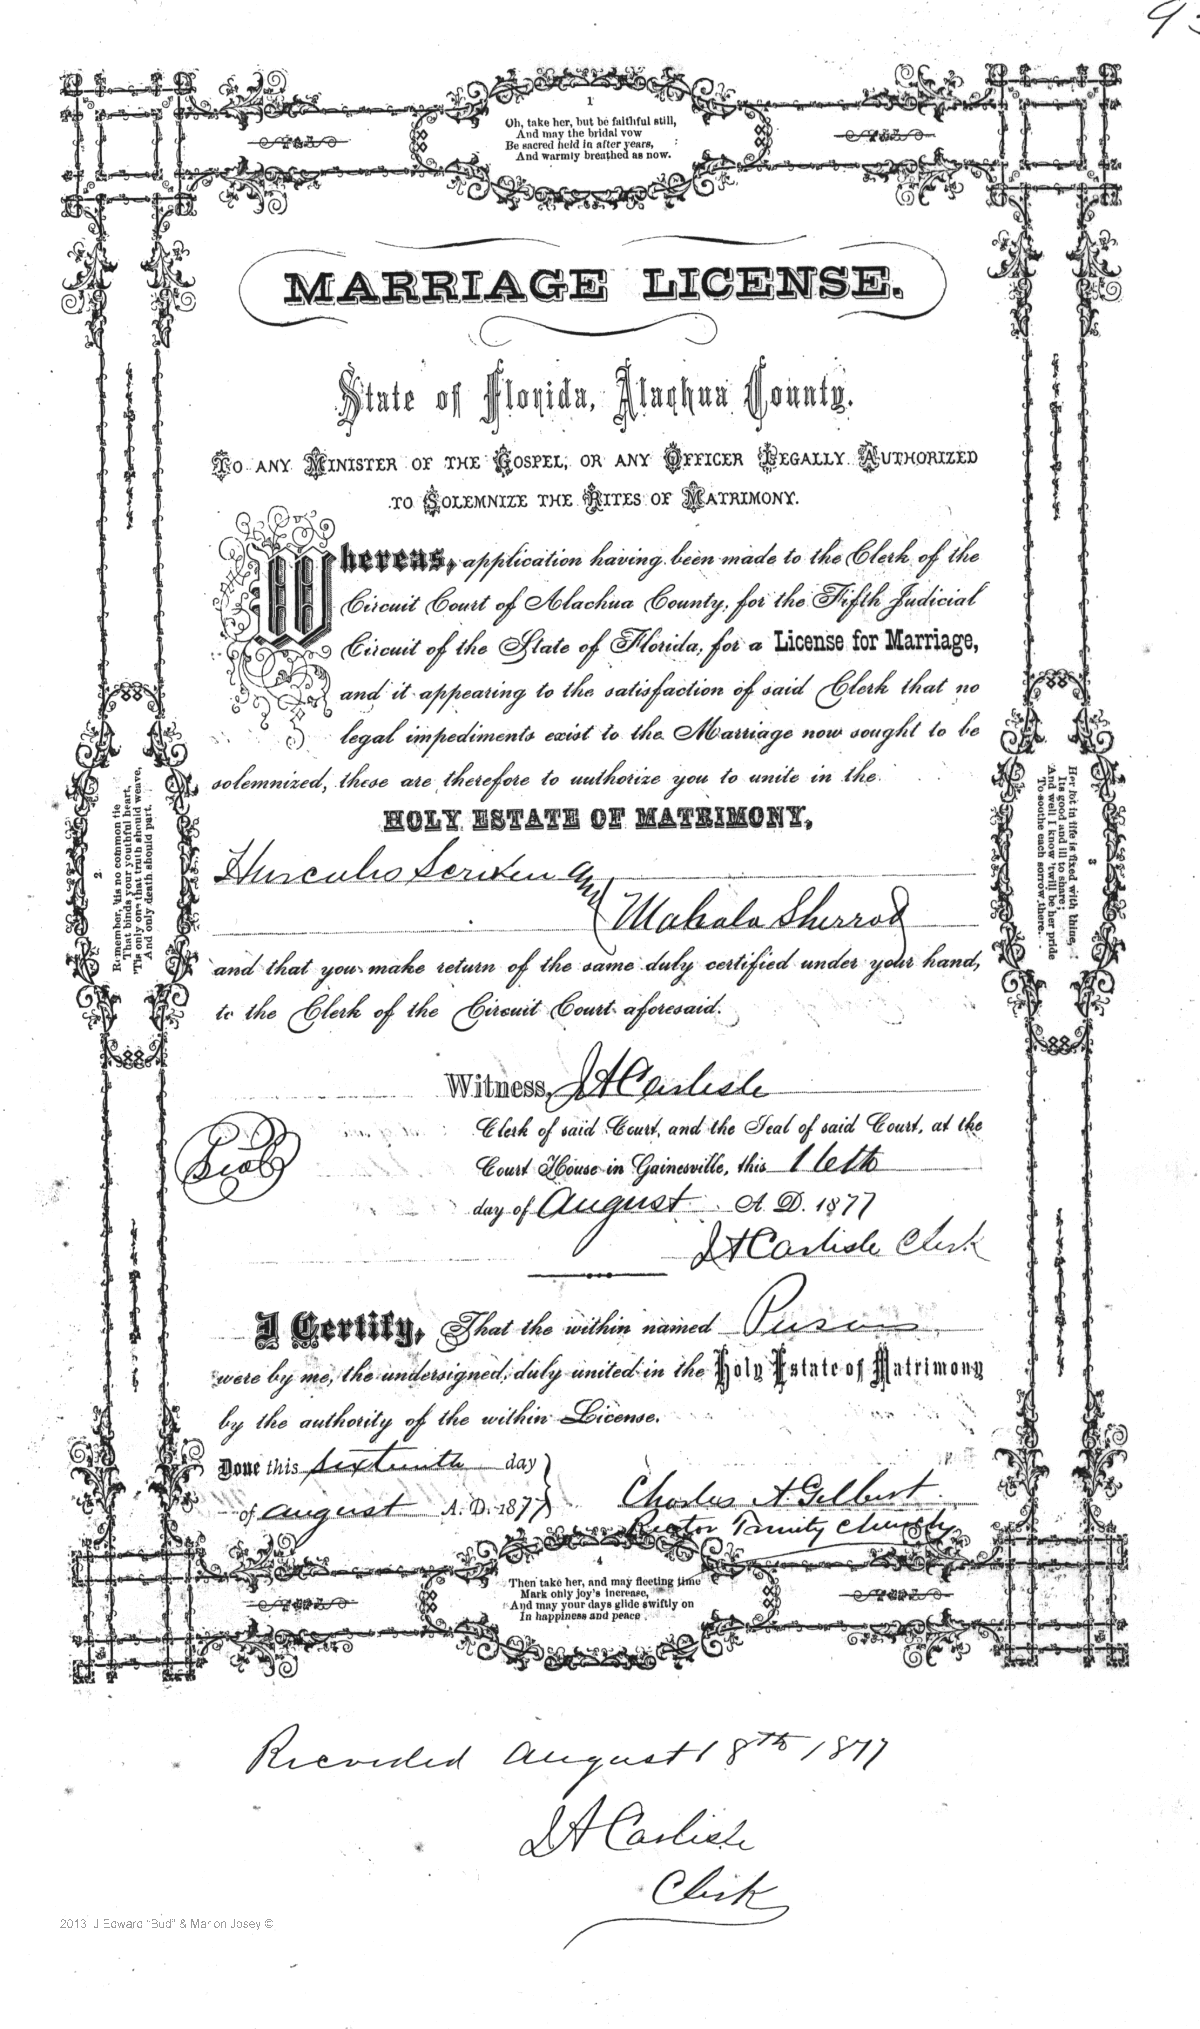 93
1
Oh, take her, but be faithful still,
And may the bridal vow
Be sacred held in after years,
And warmly breathed as now.
MARRIAGE LICENSE.
State of Florida, Alachua County.
TO ANY MINISTER OF THE GOSPEL, OR ANY OFFICER LEGALLY AUTHORIZED
TO SOLEMNIZE THE RITES OF MATRIMONY.
Whereas, application having been made to the Clerk of the
Circuit Court of Alachua County, for the Fifth Judicial
Circuit of the State of Florida, for a License for Marriage,
and it appearing to the satisfaction of said Clerk that no
legal impediments exist to the Marriage now sought to be
solemnized, these are therefore to authorize you to unite in the
HOLY ESTATE OF MATRIMONY,
Hurculus Scriven and
Mahala Sherrod
and that you make return of the same duly certified under your hand,
to the Clerk of the Circuit Court aforesaid.
Witness, J A Carlisle
Clerk of said Court, and the Seal of said Court, at the
Seal
Court House in Gainesville, this 16th
day of August A. D. 1877
J A Carlisle Clerk
I Certify, That the within named Persons
were by me, the undersigned, duly united in the Holy Estate of Matrimony
by the authority of the within License.
Done this sixteenth day
of august A. D. 1877
Charles A Gilbert
Rector Trinity Church
2.
Remember, 'tis no common tie
That binds your youthful heart,
'Tis only one that truth should weave,
And only death should part.
3
Her lot in life is fixed with thine,
Its good and ill to share;
And well I know 'twill be her pride
To soothe each sorrow there.
4
Then take her, and may fleeting time
Mark only joy's increase,
And may your days glide swiftly on
In happiness and peace
Recorded August 18th 1877
J A Carlisle
Clerk
2013 J Edward "Bud" & Marion Josey ©